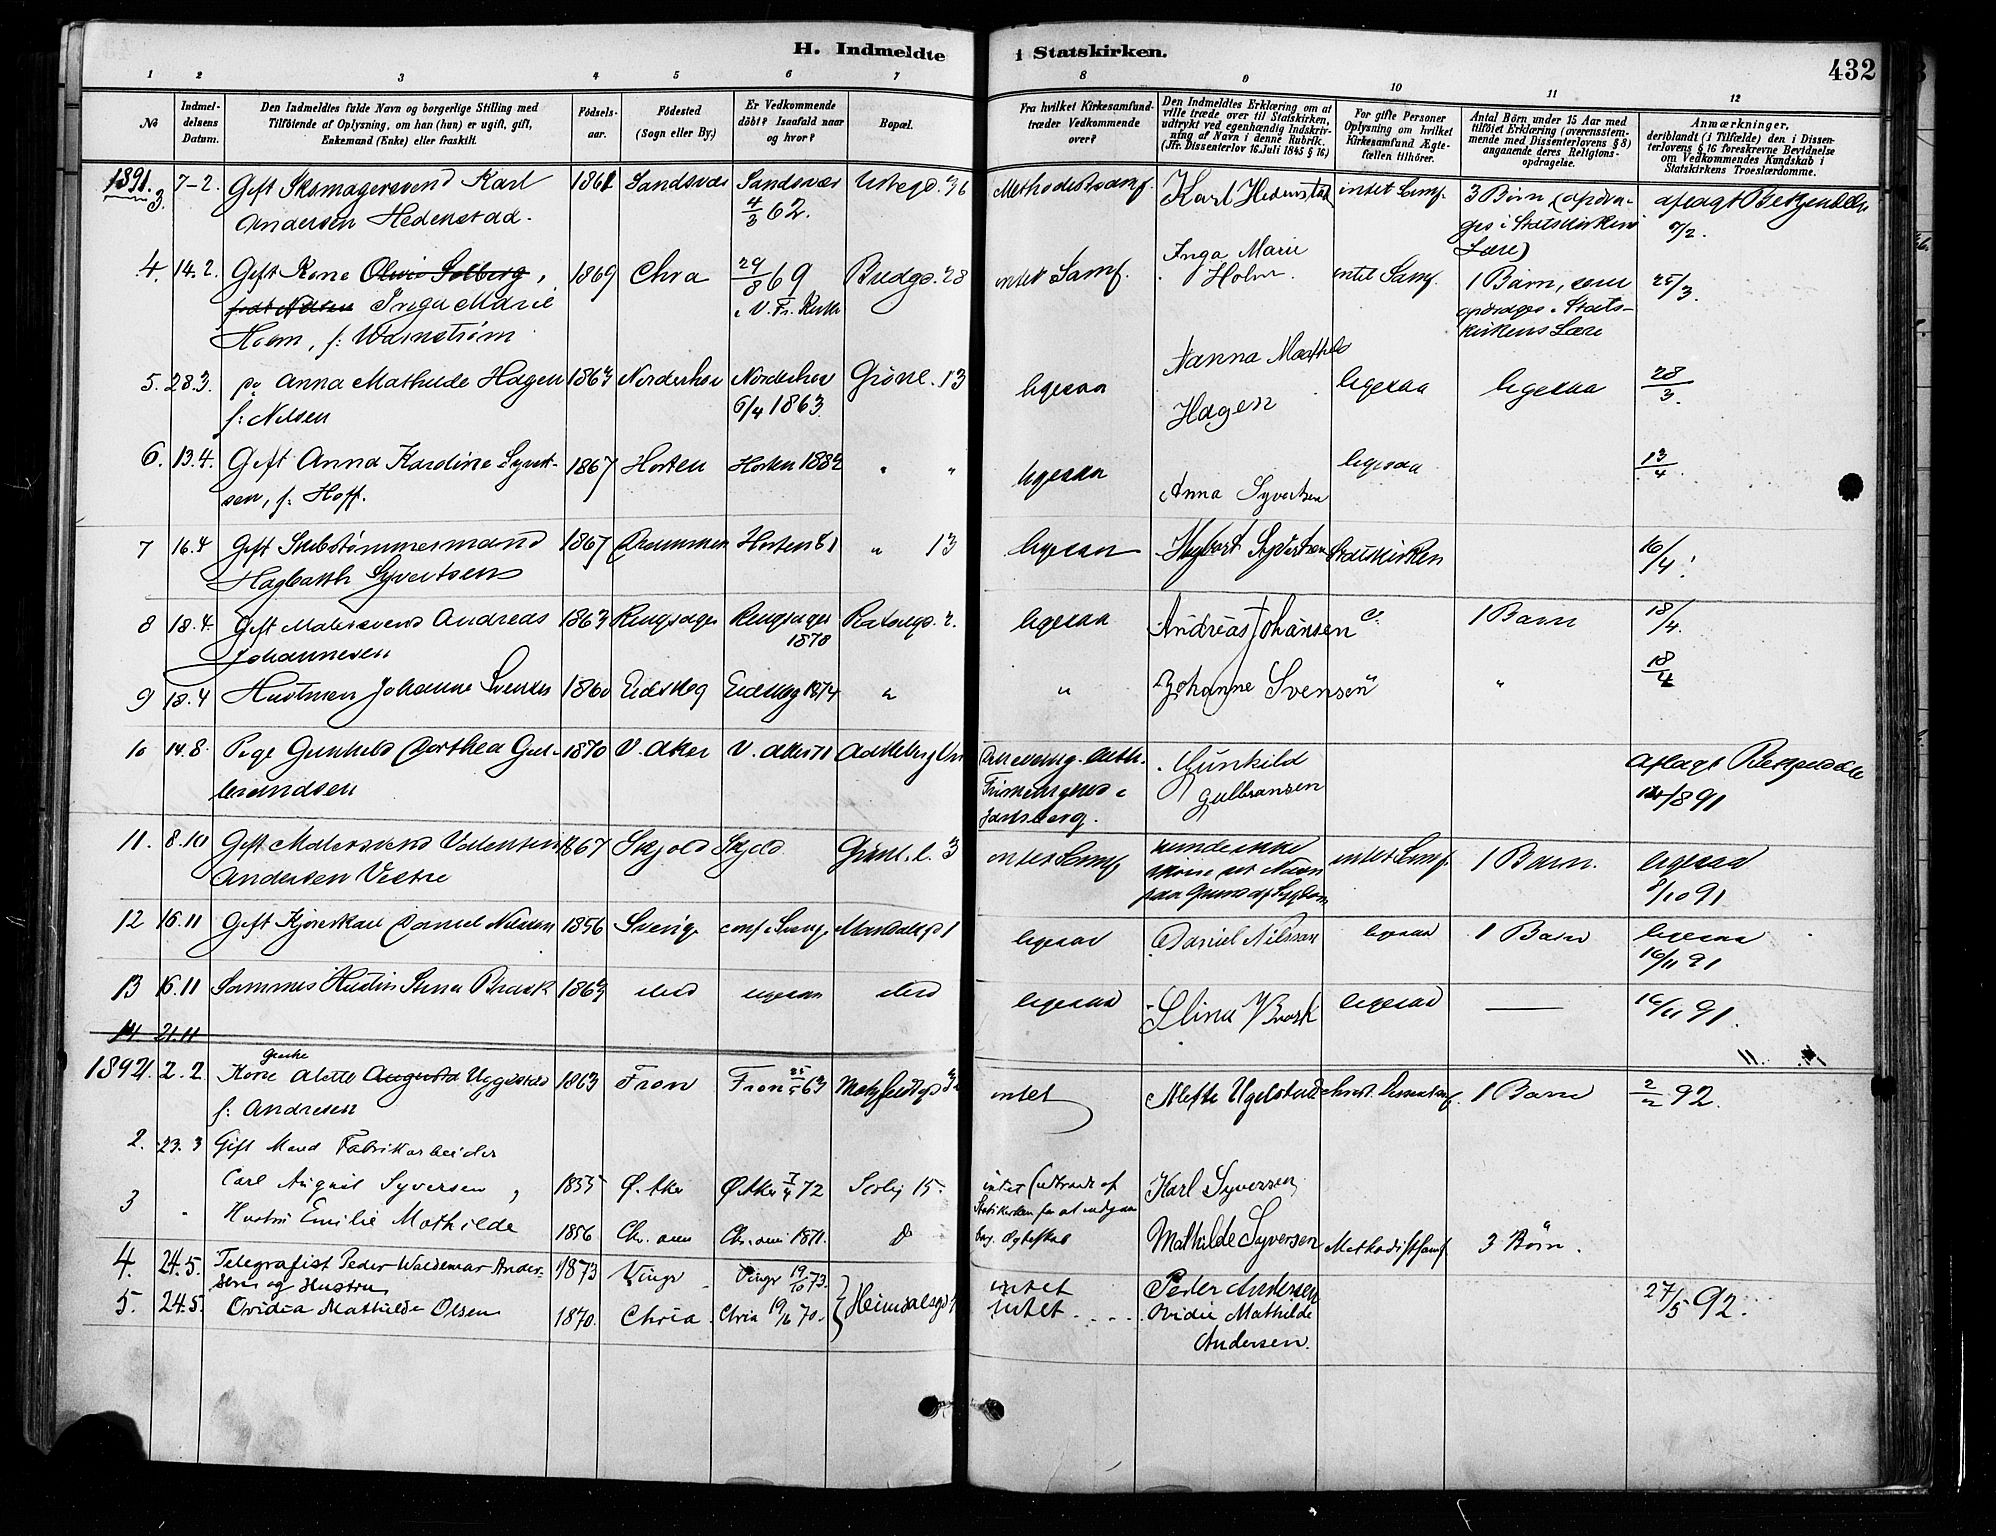 H. Indmeldte i Statskirken.
432
1 2 3 4 5 6 7 8 9 10 11 12
No
Indmel-
delsens
Datum.
Den Indmeldtes fulde Navn og borgerlige Stilling med
Tilføiende af Oplysning, om han (hun) er ugift, gift,
Enkemand (Enke) eller fraskilt.
Fødsels-
aar.
Fødested
(Sogn eller By.)
Er Vedkommende
döbt? Isaafald naar
og hvor?
Bopæl.
Fra hvilket Kirkesamfund
træder Vedkommende
over?
Den Indmeldtes Erklæring om at
ville træde over til Statskirken,
udtrykt ved egenhændig Indskriv-
ning af Navn i denne Rubrik.
(Jfr. Dissenterlov 16. Juli 1845 § 16)
For gifte Personer
Oplysning om hvilket
Kirkesamfund Ægte-
fællen tilhører.
Antal Börn under 15 Aar med
tilföiet Erklæring (overensstem-
mende med Dissenterlovens § 8)
angaaende deres Religions-
opdragelse.
Anmærkninger,
deriblandt (i Tilfælde) den i Dissen-
terlovens § 16 foreskrevne Bevidnelse
om Vedkommendes Kundskab i
Statskirkens Troeslærdomme.
1891.
3. 7-2. Gift Skomagersvend Karl 1861 Sandsvær Sandsvær 36 Methodistsamf. Karl Hedenstad intet Samf. 3 Børn (opdra- aflagt Bekjendelse
Andersen Hedenstad. 4/3 62. ges i Statskirkens /2.
Lære)
4. 14.2. Gift Kone Olivia Solberg, 1869 Chra 29/8 69 Bredgd. 28 intet Samf. Inga Marie intet Samf. 1 Barn, som 25/3.
født Nilsen Inga Marie i V. Fr. Holm. opdrages i Stats-
Holm, f: Warnstrøm kirkens Lære
5. 28.3. Anna Mathilde Hagen 1863 Norderhov Norderhov Grönl. 13 ligesaa Anna Mathilde ligesaa ligesaa 28/3.
f: Nilsen 6/4 1863. Hagen
6. 13.4. Gift Anna Kardine Syvert- 1867 Horten Horten 1882 " " ligesaa ligesaa 13/4.
sen, f: Hoff. Anna Syvertsen
7 16.4 Gift Skibstømmermand 1867 Drammen Horten 81 " 13 ligesaa Hagbart Syvertsen Statskirken 16/4.
Hagbarth Syvertsen
8 18.4. Gift Malersvend Andreas 1863 Ringsager Ringsager 2. ligesaa Andreas Johansen 1 Barn 18/4.
Johannesen 1878
9 18.4 Hustruen Johanne Svensen 1860 Eidskog Eidskog 1874 " " Johanne Svensen " " 18/4
10 14.8. Pige Gunhild Dorthea Gul- 1870 V. Aker V. Aker 71 Frimenighed i Gunhild aflagt Bekjendelse
brandsen Jarlsberg. Gulbransen /8 91
11. 8.10 Gift Malersvend Valentin 1867 Skjold Skjold Grönl. l. 3 intet Samf kunde ikke intet Samf. 1 Barn. ligesaa
Andersen Vestre skrive sit Navn 8/10 91
paa Grund af Sygdom
12 16.11 Gift Kjørekarl Daniel Nilssen 1856 Sverige conf. i Sverige 1 ligesaa Daniel Nilsson ligesaa 1 Barn ligesaa
16/11 91
13 16.11 Sammes Hustru Stina Brask 1863 ibid ligesaa ibid ligesaa Stina Brask ligesaa — 16/11 91.
14 21.11
1892
1. 2.2. Kone Alette Augusta Uggelstad 1863 Fron Fron 63 intet Alette Ugelstad 1 Barn 2/2 92.
f: Andresen
2. 23.3 Gift Mand Fabrikarbeider
Carl August Syversen, 1855 Ø. Aker Ø. Aker 7/4 72 15. intet (udtraadt af Karl Syversen
3 " Hustru Emilie Mathilde 1856 Chr.ania Chr.ania 1871. Statskirken for at indgaa
borg. Ægteskab Mathilde Syversen Methodistsamf 3 Börn.
4. 24.5. Telegrafist Peder Waldemar Ander- 1873 Vinger Vinger 19/10 73. intet Peder Andersen
sen og Hustru Heimdalsgd 27/5 92.
5. 24.5. Ovidia Mathilde Olsen 1870. Chria Chria 19/6 70. intet Ovidie Mathilde
Andersen.